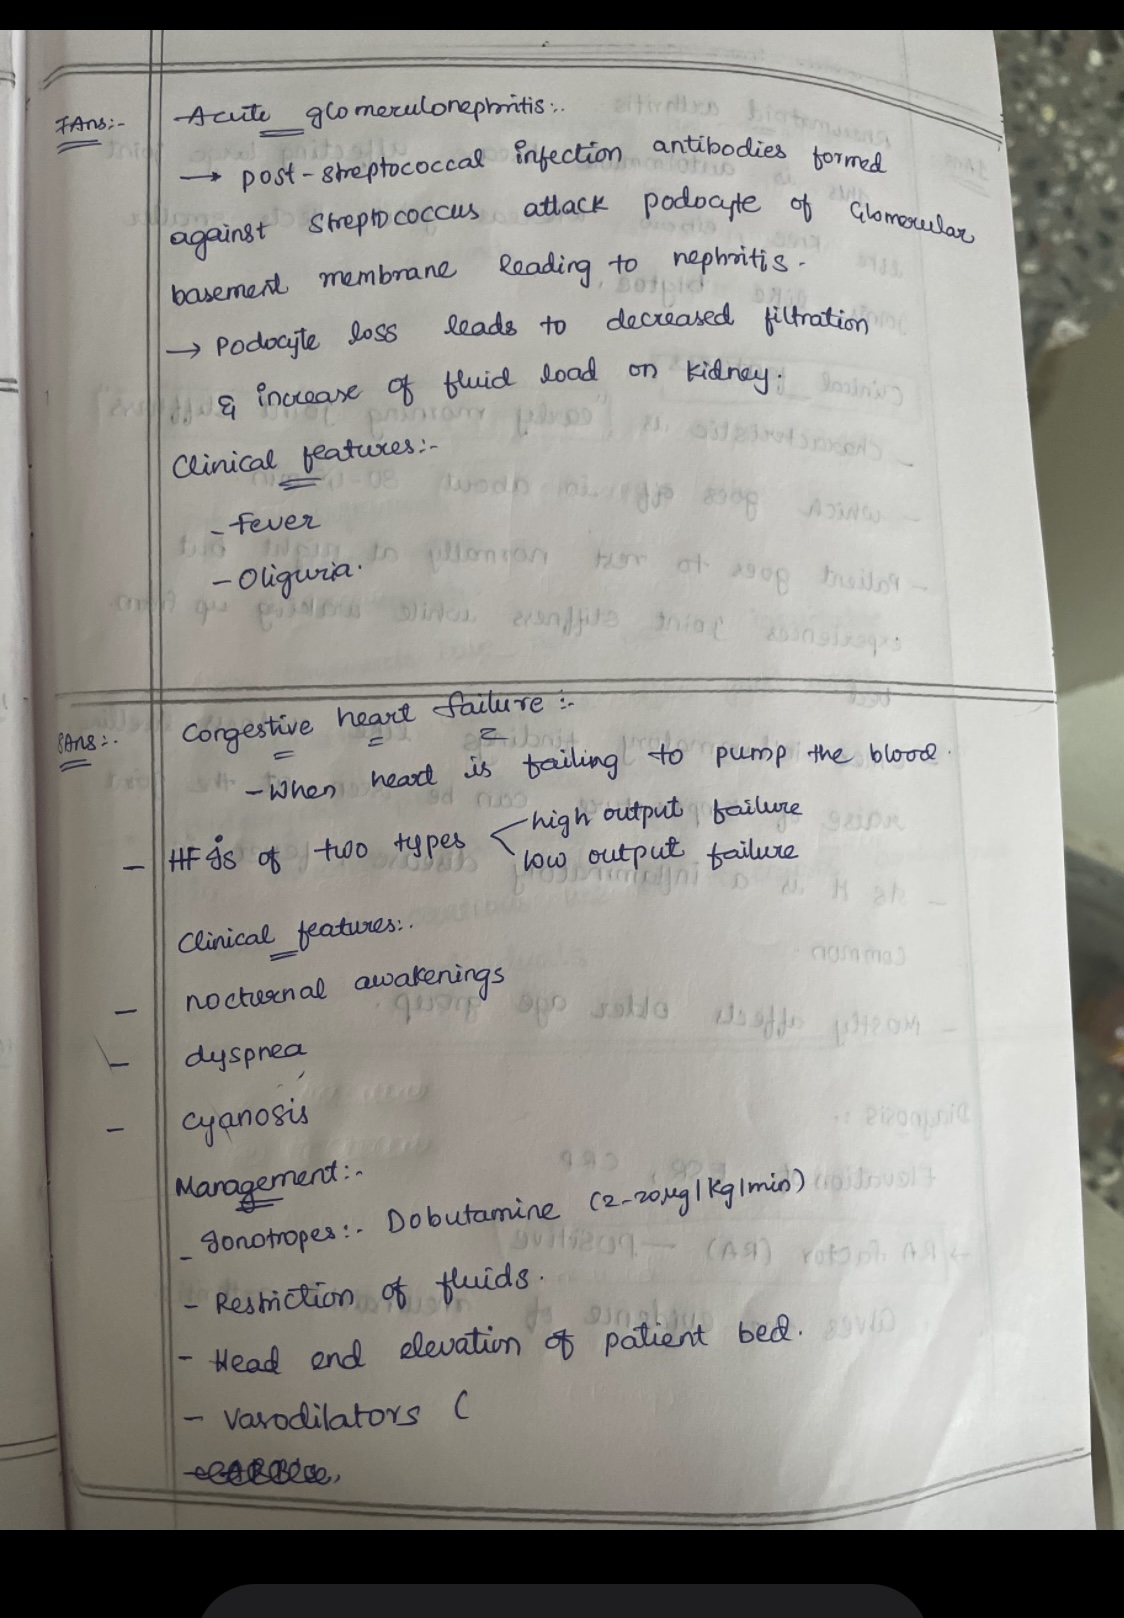 7Ans:-
Acute glomerulonephritis:-
→ post-streptococcal infection antibodies formed
against streptococcus attack podocyte of Glomerular
basement membrane leading to nephritis.
→ Podocyte loss leads to decreased filtration
& increase of fluid load on kidney.
Clinical features:-
- Fever
- Oliguria.
8Ans:-
Congestive heart failure :-
- When heart is failing to pump the blood.
- HF is of two types
high output failure
low output failure
Clinical features:-
- nocturnal awakenings
- dyspnea
- cyanosis
Management:-
- Ionotropes:- Dobutamine (2-20µg/kg/min)
- Restriction of fluids.
- Head end elevation of patient bed.
- Vasodilators (